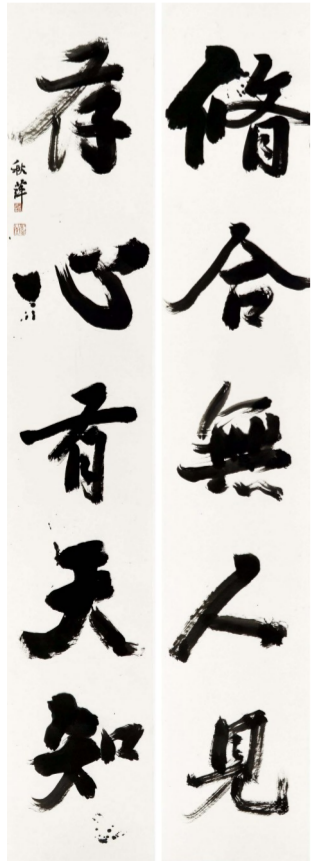 脩合無人見
存心有天知
秋萍